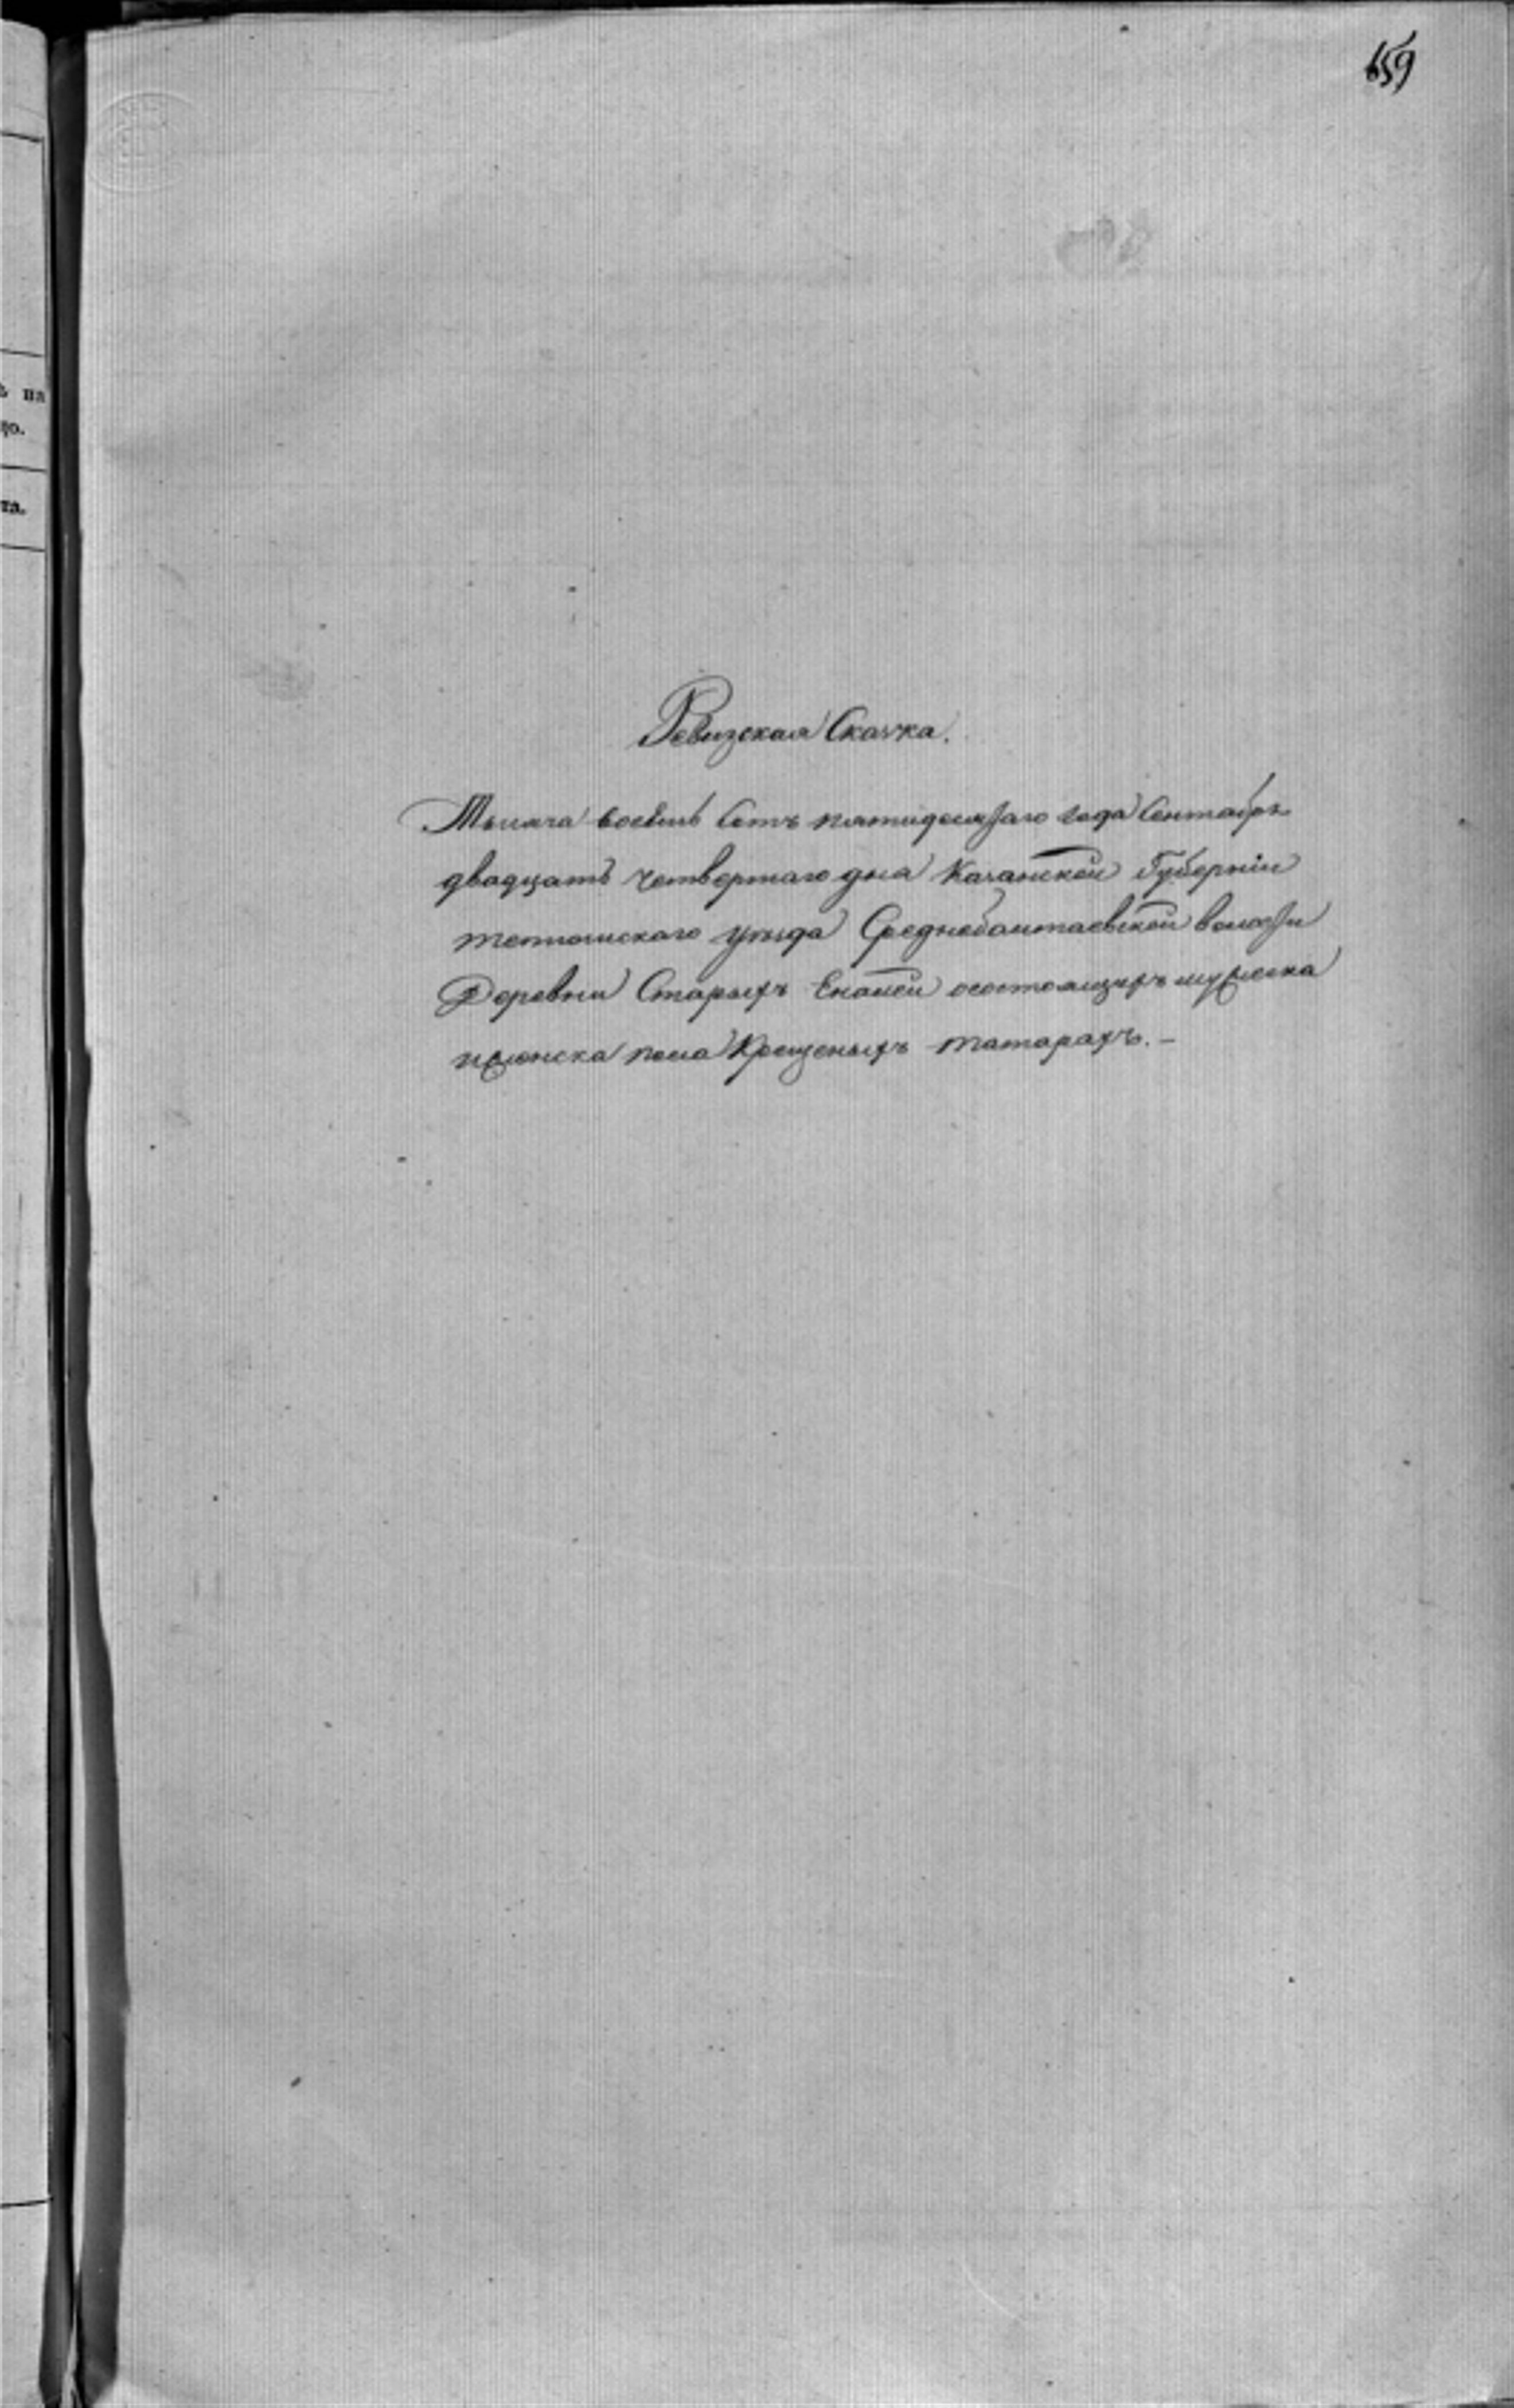 659
Ревизская Сказка.
Тысяча восемь сотъ пятидесятаго года Сентября
двадцать четвертаго дня Казанской Губерніи
тетюшскаго уѣзда Среднебалтаевской волости
Деревни Старыхъ Еналей осостоящихъ мужеска
иженска пола Крещеныхъ татарахъ.-
ъ на
цо.
та.